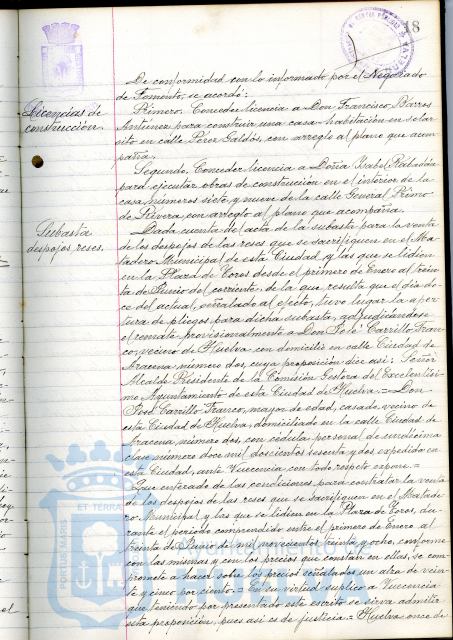 18
De conformidad con lo informado por el Negociado
de Fomento, se acordó:
Licencias de
construcción.
Primero. Conceder licencia a Don Francisco Barros
para construir una casa-habitación en solar
sito en calle Pérez Galdós, con arreglo al plano que acom
paña.
Segundo. Conceder licencia a Doña Isabel
para ejecutar obras de construcción en el interior de la
casa números siete y nueve de la calle General Primo
de Rivera con arreglo al plano que acompaña.
Subasta
despojos reses.
Dada cuenta del acta de la subasta para la venta
de los despojos de las reses que se sacrifiquen en el Ma-
tadero Municipal de esta Ciudad y las que se lidien
en la Plaza de Toros desde el primero de Enero al trein
ta de Junio del corriente, de la que resulta que el día do-
ce del actual, señalado al efecto, tuvo lugar la aper
tura de pliegos para dicha subasta, adjudicándose
el remate provisionalmente a Don José Carrillo Fran-
co, vecino de Huelva con domicilio en calle Ciudad de
Aracena, número dos, cuya proposición dice así: Señor
Alcalde Presidente de la Comisión Gestora del Excelentísi-
mo Ayuntamiento de esta Ciudad de Huelva.= Don
José Carrillo Franco, mayor de edad, casado, vecino de
esta Ciudad de Huelva, domiciliado en la calle Ciudad de
Aracena, número dos, con cédula personal de undécima
clase número doce mil doscientos sesenta y dos expedido en
esta Ciudad, ante Vuecencia con todo respeto expone.=
Que enterado de las condiciones para contratar la venta
de los despojos de las reses que se sacrifiquen en el Matade
ro Municipal y las que se lidien en la Plaza de Toros, du-
rante el período comprendido entre el primero de Enero al
treinta de Junio de mil novecientos treinta y ocho, conforme
con las mismas y con los precios que constan en ellas, se com
promete a hacer sobre los precios señalados un alza de vein-
te y cinco por ciento.= En su virtud suplico a Vuecencia
que teniendo por presentado este escrito se sirva admitir
esta proposición, pues así es de justicia.= Huelva once de
PORTUS MARIS
ET TERRAE